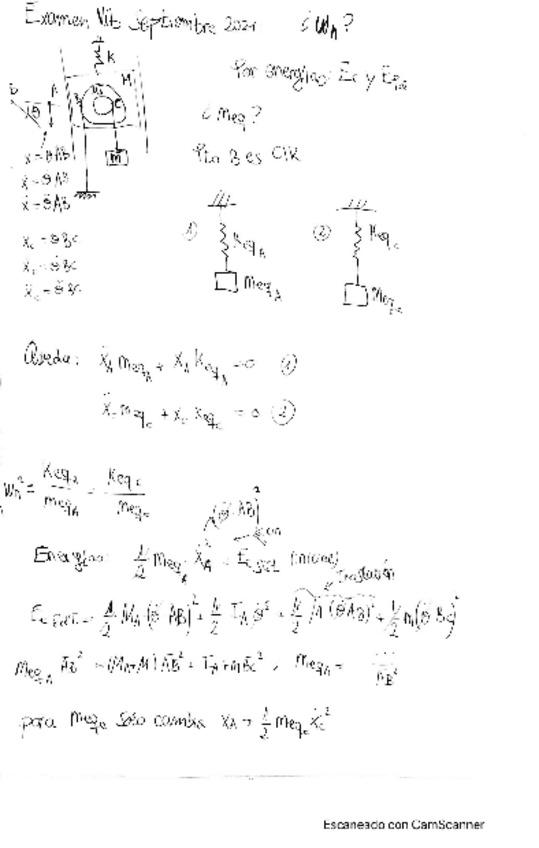 Examen Vib Septiembre 2021 ¿ωn?
Por energías: Ec y Ep
¿meq?
Pto B es CIR
K
M
A
B
θ
m
x = θ AB
ẋ = θ̇ AB
ẍ = θ̈ AB
xc = θ BC
ẋc = θ̇ BC
ẍc = θ̈ BC
① KeqA meqA
② Keqc meqc
Queda: ẍA meqA + xA KeqA = 0 ①
ẍc meqc + xc Keqc = 0 ②
ωn² = KeqA/meqA = Keqc/meqc
(θ̇ AB)²
Energías: 1/2 meqA ẋA² = Ec
traslación
1/2 MA (θ̇ AB)² + 1/2 IA θ̇² + 1/2 M (θ̇ AB)² + 1/2 m (θ̇ BC)²
meqA AB² = (MA+M) AB² + IA + m BC², meqA = .../AB²
para meqc solo cambia xA → 1/2 meqc ẋc²
Escaneado con CamScanner